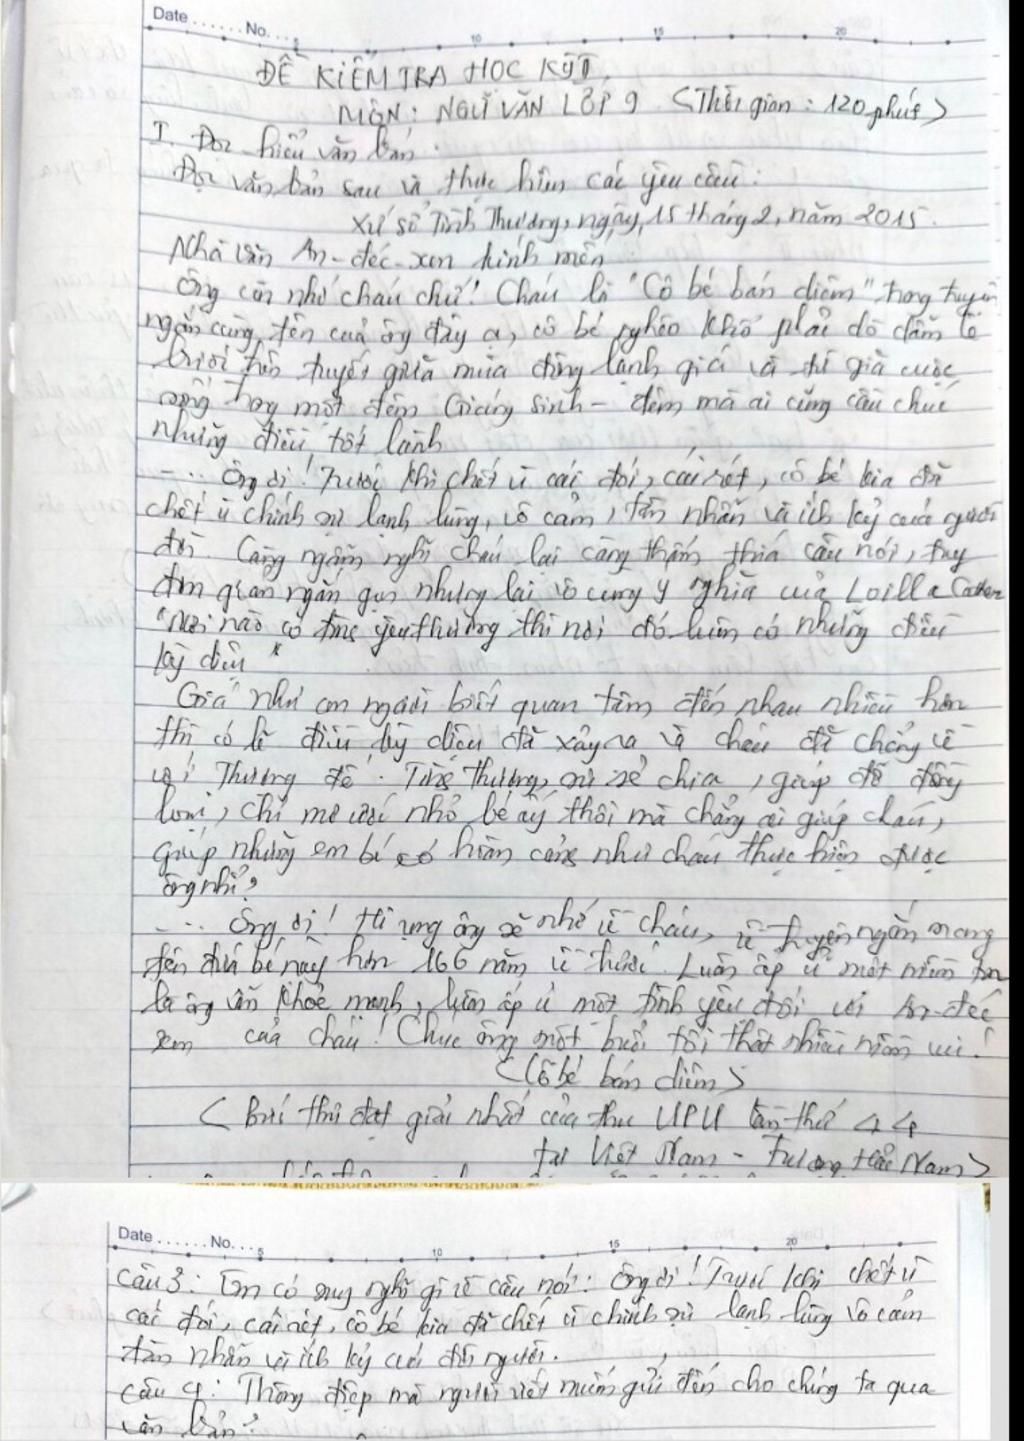 Date ...... No. ... 5 10 15 20
ĐỀ KIỂM TRA HỌC KỲ I
MÔN: NGỮ VĂN LỚP 9 <Thời gian: 120 phút>
I. Đọc hiểu văn bản.
Đọc văn bản sau và thực hiện các yêu cầu:
Xứ sở Tình Thương, ngày 15 tháng 2, năm 2015.
Nhà văn An-đéc-xen kính mến
Ông còn nhớ cháu chứ! Cháu là "Cô bé bán diêm" trong truyện
ngắn cùng tên của ông đây ạ, cô bé nghèo khổ phải dò dẫm lê
bước trên tuyết giữa mùa đông lạnh giá và từ giã cuộc
sống trong một đêm Giáng sinh - đêm mà ai cũng cầu chúc
những điều tốt lành
-... Ông ơi! Trước khi chết vì cái đói, cái rét, cô bé kia đã
chết vì chính sự lạnh lùng, vô cảm, tàn nhẫn và ích kỷ của người
đời. Càng ngẫm nghĩ cháu lại càng thấm thía câu nói, tuy
đơn giản ngắn gọn nhưng lại vô cùng ý nghĩa của Loilla
"Nơi nào có tình yêu thương thì nơi đó luôn có những điều
kỳ diệu"
Giá như con người biết quan tâm đến nhau nhiều hơn
thì có lẽ điều kỳ diệu đã xảy ra và cháu đã chẳng về
với Thượng đế. Tình thương, sự sẻ chia, giúp đỡ đồng
loại, chỉ mơ ước nhỏ bé ấy thôi mà chẳng ai giúp cháu,
giúp những em bé có hoàn cảnh như cháu thực hiện được
ông nhỉ?
... Ông ơi! Hi vọng ông sẽ nhớ về cháu, về truyện ngắn mang
tên đứa bé này hơn 166 năm về trước. Luôn ấp ủ một niềm tin
là ông vẫn khoẻ mạnh, luôn ấp ủ một tình yêu đối với An-đéc
xen của cháu! Chúc ông một buổi tối thật nhiều niềm vui!
<Cô bé bán diêm>
< Bức thư đạt giải nhất của thu UPU lần thứ 44
tại Việt Nam - Nam>
Date ...... No. ... 5 10 15 20
Câu 3: Em có suy nghĩ gì về câu nói: Ông ơi! Trước khi chết vì
cái đói, cái rét, cô bé kia đã chết vì chính sự lạnh lùng vô cảm
tàn nhẫn và ích kỷ của đời người.
Câu 4: Thông điệp mà người viết muốn gửi đến cho chúng ta qua
văn bản?